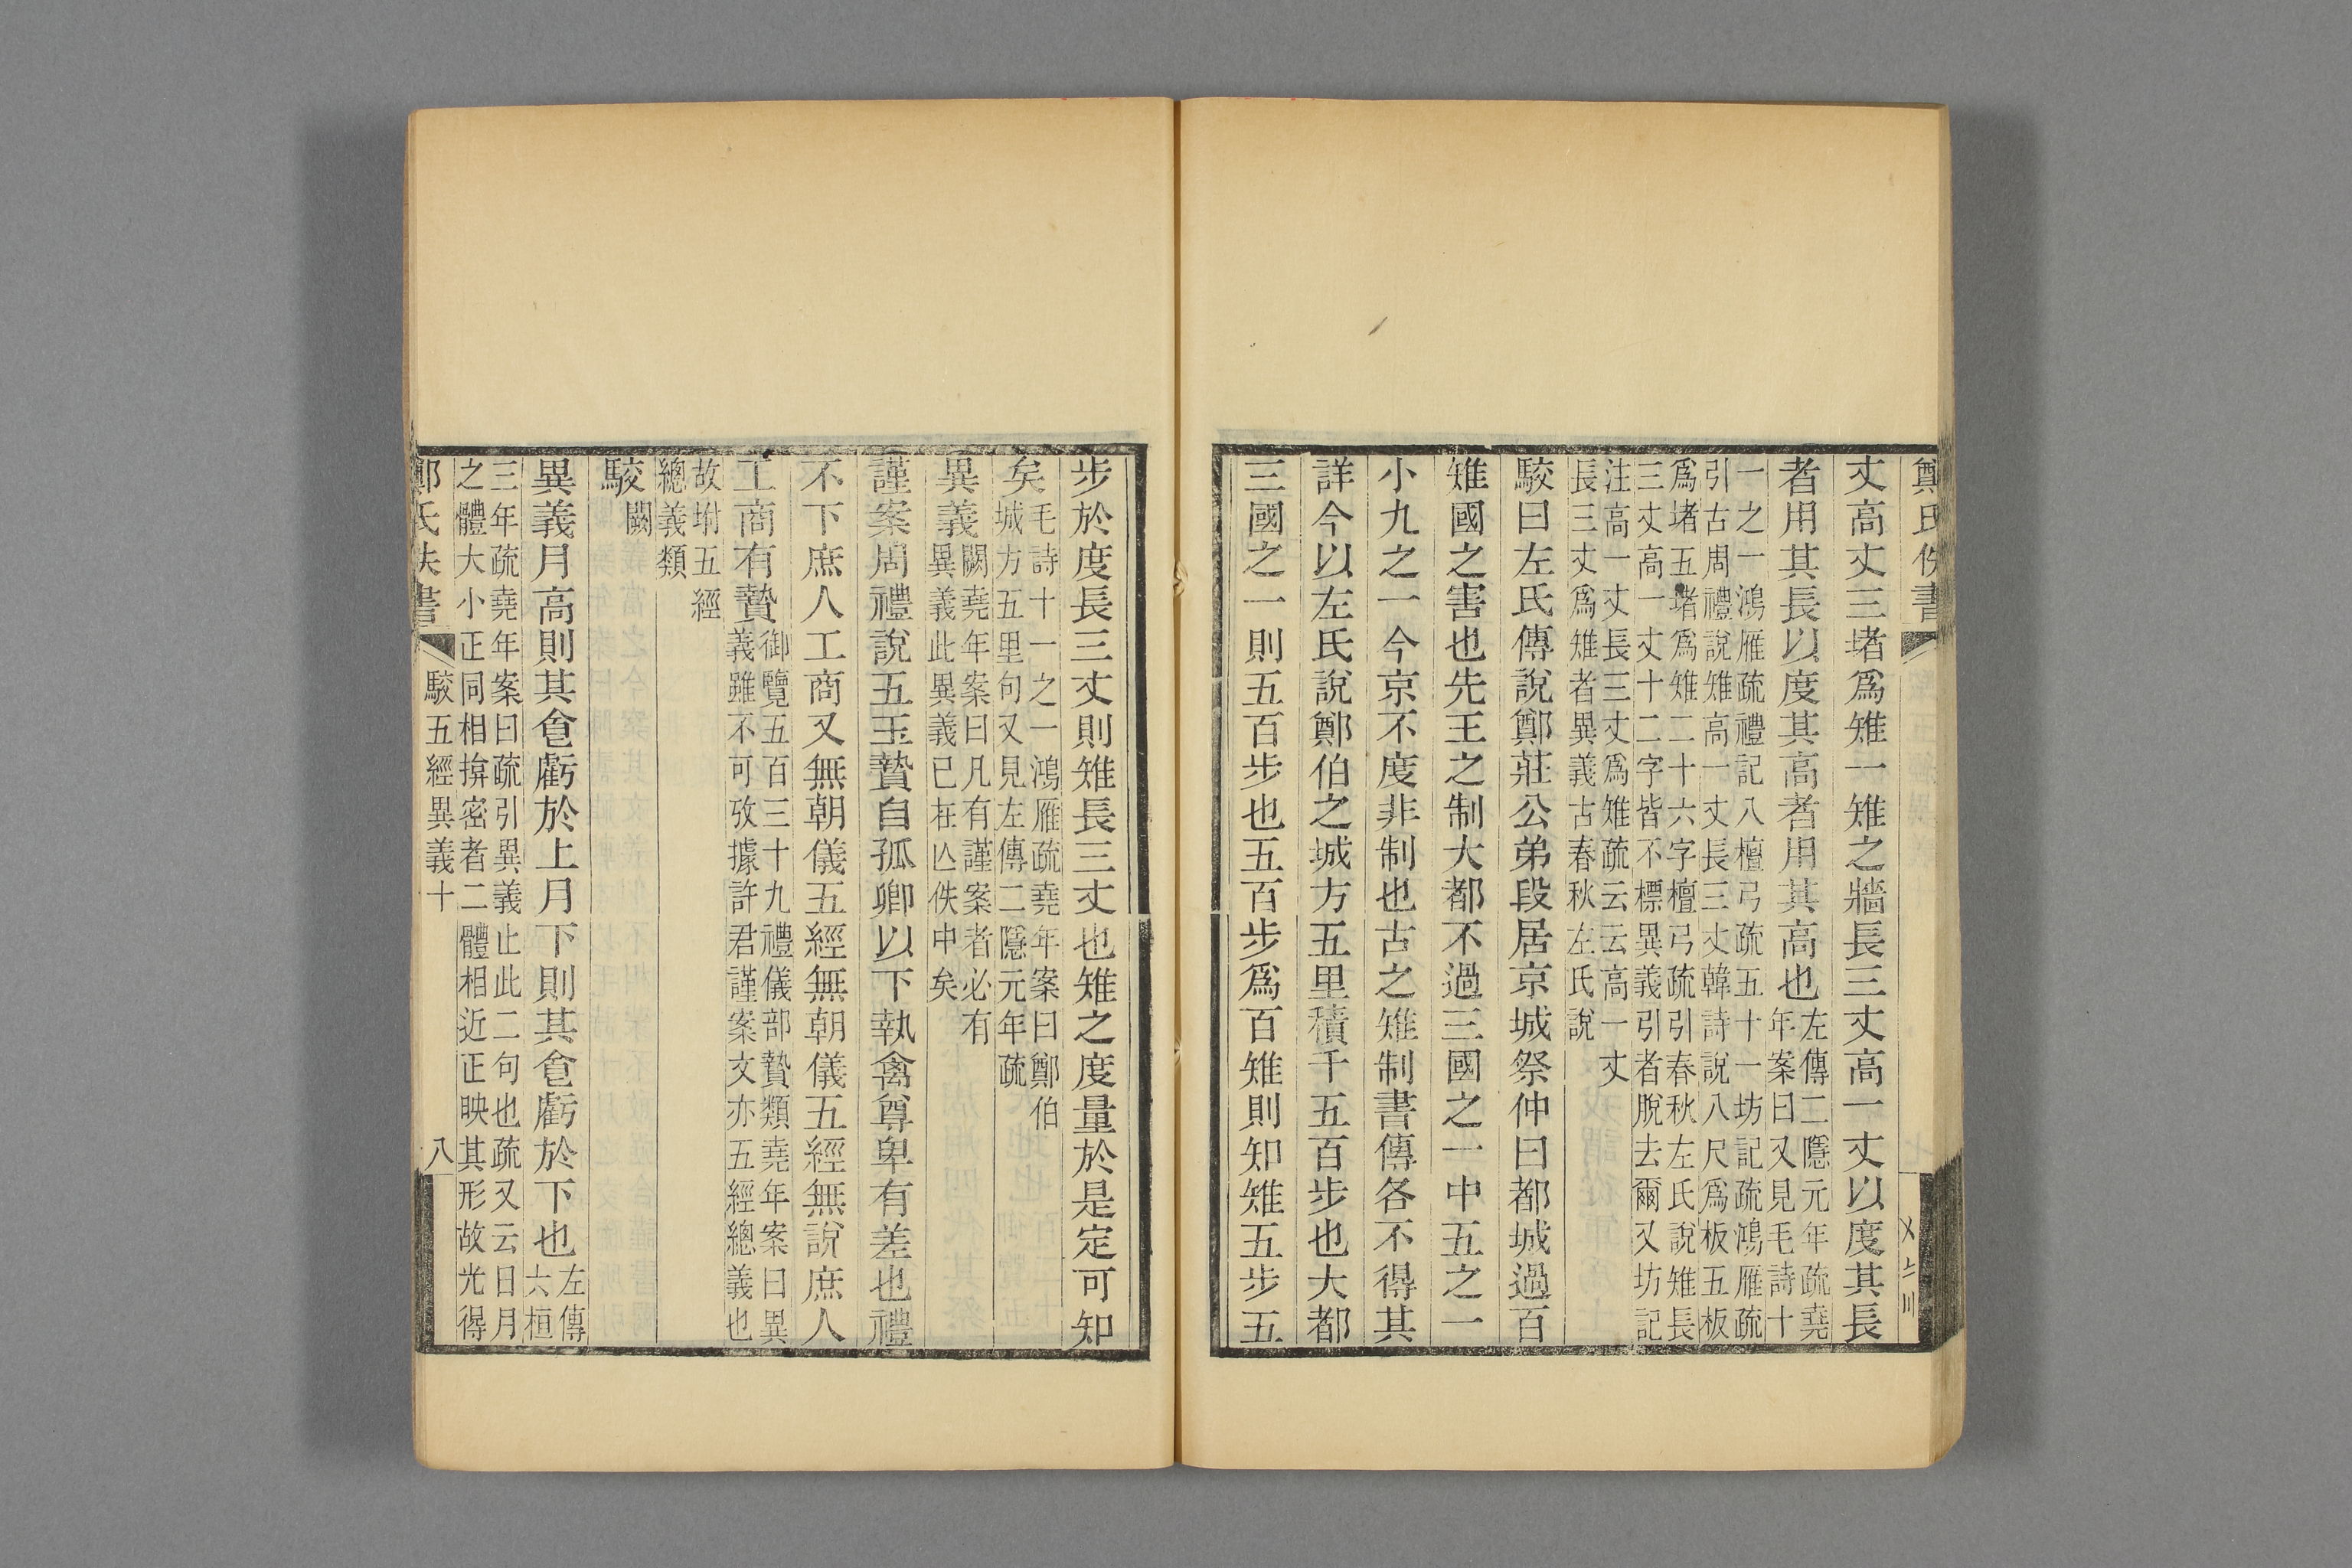 鄭氏佚書
丈高丈三堵爲雉一雉之牆長三丈高一丈以度其長
者用其長以度其高者用其高也左傳二隱元年疏堯
年案曰又見毛詩十
一之一鴻雁疏禮記八檀弓疏五十一坊記疏鴻雁疏
引古周禮說雉高一丈長三丈韓詩說八尺爲板五板
爲堵五堵爲雉二十六字檀弓疏引春秋左氏說雉長
三丈高一丈十二字皆不標異義引者脫去爾又坊記
注高一丈長三丈爲雉疏云云高一丈
長三丈爲雉者異義古春秋左氏說
駮曰左氏傳說鄭莊公弟段居京城祭仲曰都城過百
雉國之害也先王之制大都不過三國之一中五之一
小九之一今京不度非制也古之雉制書傳各不得其
詳今以左氏說鄭伯之城方五里積千五百步也大都
三國之一則五百步也五百步爲百雉則知雉五步五
步於度長三丈則雉長三丈也雉之度量於是定可知
矣毛詩十一之一鴻雁疏堯年案曰鄭伯
城方五里句又見左傳二隱元年疏
異義闕堯年案曰凡有謹案者必有
異義此異義已在亾佚中矣
謹案周禮說五玉贄自孤卿以下執禽尊卑有差也禮
不下庶人工商又無朝儀五經無朝儀五經無說庶人
工商有贄御覽五百三十九禮儀部贄類堯年案曰異
義雖不可攷據許君謹案文亦五經總義也
故坿五經
總義類
駮闕
異義月高則其食虧於上月下則其食虧於下也左傳
六桓
三年疏堯年案曰疏引異義止此二句也疏又云日月
之體大小正同相揜密者二體相近正映其形故光得
鄭氏佚書 駮五經異義十 八